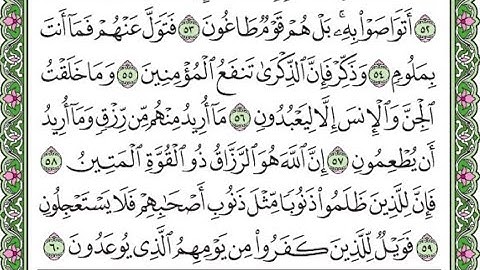 ٥٢ أَتَوَاصَوْا۟ بِهِۦ ۚ بَلْ هُمْ قَوْمٌ طَاغُونَ ٥٣ فَتَوَلَّ عَنْهُمْ فَمَآ أَنتَ
بِمَلُومٍ ٥٤ وَذَكِّرْ فَإِنَّ ٱلذِّكْرَىٰ تَنفَعُ ٱلْمُؤْمِنِينَ ٥٥ وَمَا خَلَقْتُ
ٱلْجِنَّ وَٱلْإِنسَ إِلَّا لِيَعْبُدُونِ ٥٦ مَآ أُرِيدُ مِنْهُم مِّن رِّزْقٍ وَمَآ أُرِيدُ
أَن يُطْعِمُونِ ٥٧ إِنَّ ٱللَّهَ هُوَ ٱلرَّزَّاقُ ذُو ٱلْقُوَّةِ ٱلْمَتِينُ ٥٨
فَإِنَّ لِلَّذِينَ ظَلَمُوا۟ ذَنُوبًا مِّثْلَ ذَنُوبِ أَصْحَٰبِهِمْ فَلَا يَسْتَعْجِلُونِ
٥٩ فَوَيْلٌ لِّلَّذِينَ كَفَرُوا۟ مِن يَوْمِهِمُ ٱلَّذِى يُوعَدُونَ ٦٠